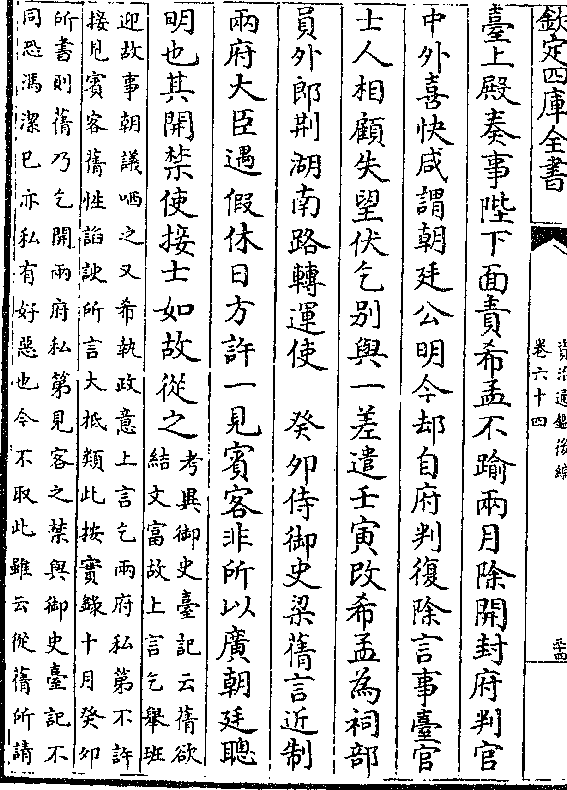 欽定四庫全書
資治通鑑後編
卷六十四
臺上殿奏事陛下面責希孟不踰兩月除開封府判官
中外喜快咸謂朝廷公明今却自府判復除言事臺官
士人相顧失望伏乞别與一差遣壬寅改希孟為祠部
員外郎荆湖南路轉運使　癸夘侍御史梁蒨言近制
兩府大臣遇假休日方許一見賓客非所以廣朝廷聰
明也其開禁使接士如故從之
考異御史臺記云蒨欲
結文富故上言乞舉班
迎故事朝議哂之又希執政意上言乞兩府私第不許
接見賓客蒨性諂諛所言大抵類此按實錄十月癸夘
所書則蒨乃乞開兩府私第見客之禁與御史臺記不
同恐馮潔已亦私有好惡也今不取此雖云從蒨所請